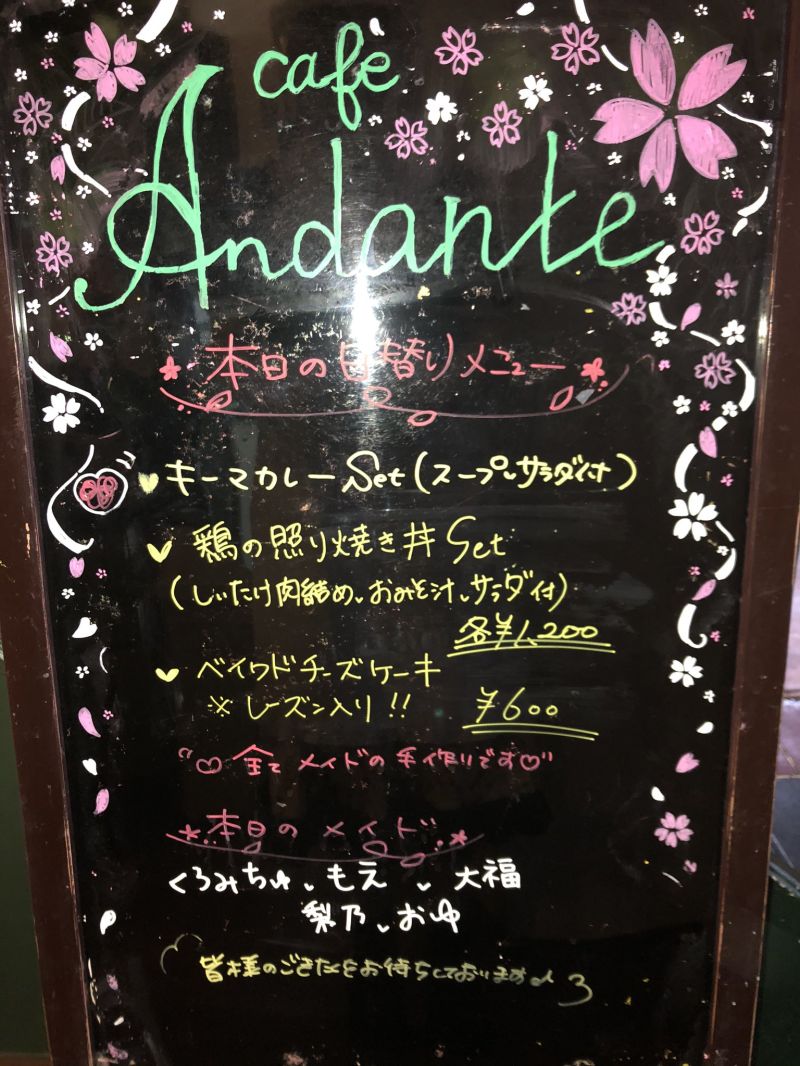 cafe
Andante
本日の日替りメニュー
キーマカレーSet(スープ、サラダ付)
鶏の照り焼き丼Set
(しいたけ肉詰め、おみそ汁、サラダ付)
各¥1,200
ベイクドチーズケーキ
※レーズン入り!!
¥600
"♡全てメイドの手作りです♡"
本日のメイド
くろみちゅ、もえ、大福
梨乃、おゆ
皆様のごきたくをお待ちしております♪